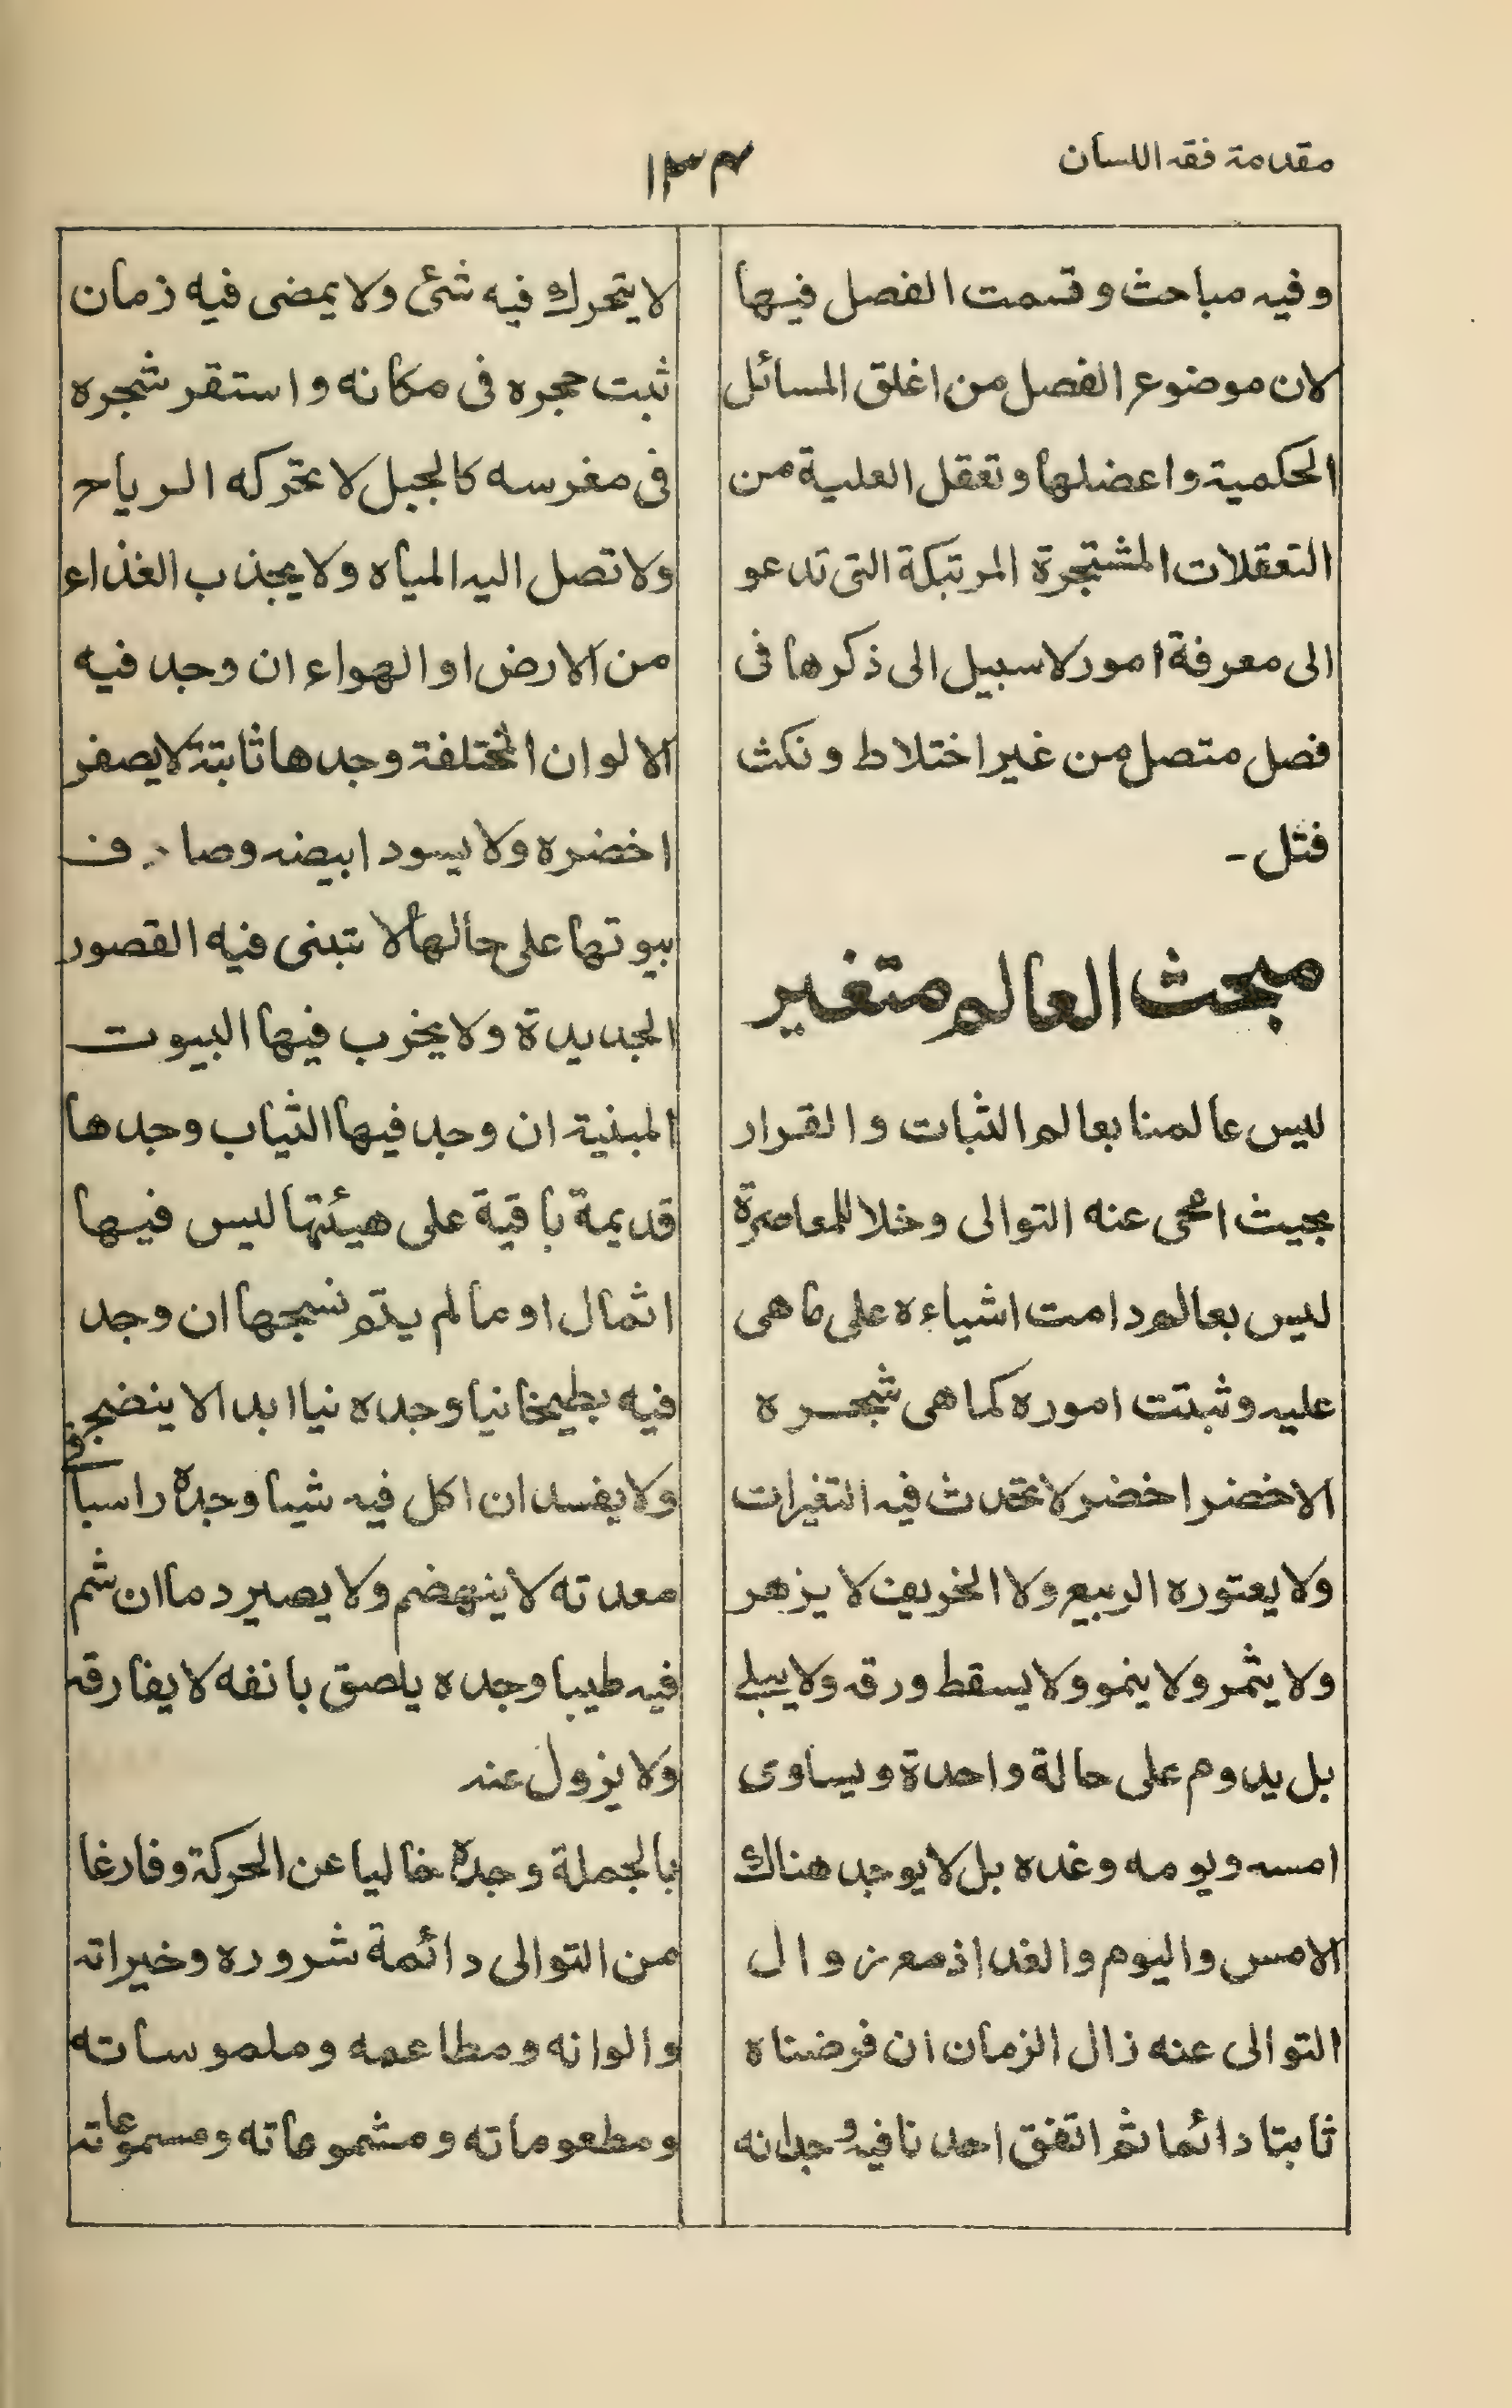 مقدمة فقه اللسان
١٣٣
وفيه مباحث وقسمت الفصل فيها
لان موضوع الفصل من اغلق المسائل
الحكمية واعضلها وتعقل العلية من
التعقلات المشتجرة المرتبكة التى تدعو
الى معرفة امور لاسبيل الى ذكرها فى
فصل متصل من غير اختلاط ونكث
فتل -
مبحث العالم متغير
ليس عالمنا بعالم الثبات والقرار
بحيث امحى عنه التوالى وخلا للمعاصرة
ليس بعالم دامت اشياءه على ما هى
عليه وثبتت اموره كما هى شجره
الاخضر اخضر لا تحدث فيه التغيرات
ولا يعتوره الربيع ولا الخريف لا يزهر
ولا يثمر ولا ينمو ولا يسقط ورقه ولا يبلى
بل يدوم على حالة واحدة ويساوى
امسه ويومه وغده بل لا يوجد هناك
الامس واليوم والغد اذ مع زوال
التوالى عنه زال الزمان ان فرضناه
ثابتا دائما ثم اتفق احدنا فيه وجدانه
لا يتحرك فيه شئ ولا يمضى فيه زمان
ثبت حجره فى مكانه واستقر شجره
فى مغرسه كالجبل لا تحركه الرياح
ولا تصل اليه المياه ولا يجذب الغذاء
من الارض او الهواء ان وجد فيه
الالوان المختلفة وجدها ثابتة لا يصفر
اخضره ولا يسود ابيضه وصادف
بيوتها على حالها لا تبنى فيه القصور
الجديدة ولا يخرب فيها البيوت
المبنية ان وجد فيها الثياب وجدها
قديمة باقية على هيئتها ليس فيها
اثمال او ما لم يتم نسجها ان وجد
فيه بطيخا نيا وجده نيا ابدا لا ينضج
ولا يفسد ان اكل فيه شيا وجده راسبا فى
معدته لا ينهضم ولا يصير دما ان شم
فيه طيبا وجده يلصق بانفه لا يفارقه
ولا يزول عنه
بالجملة وجده خاليا عن الحركة وفارغا
من التوالى دائمة شروره وخيراته
والوانه ومطاعمه وملموساته
ومطعوماته ومشموماته ومسموعاته